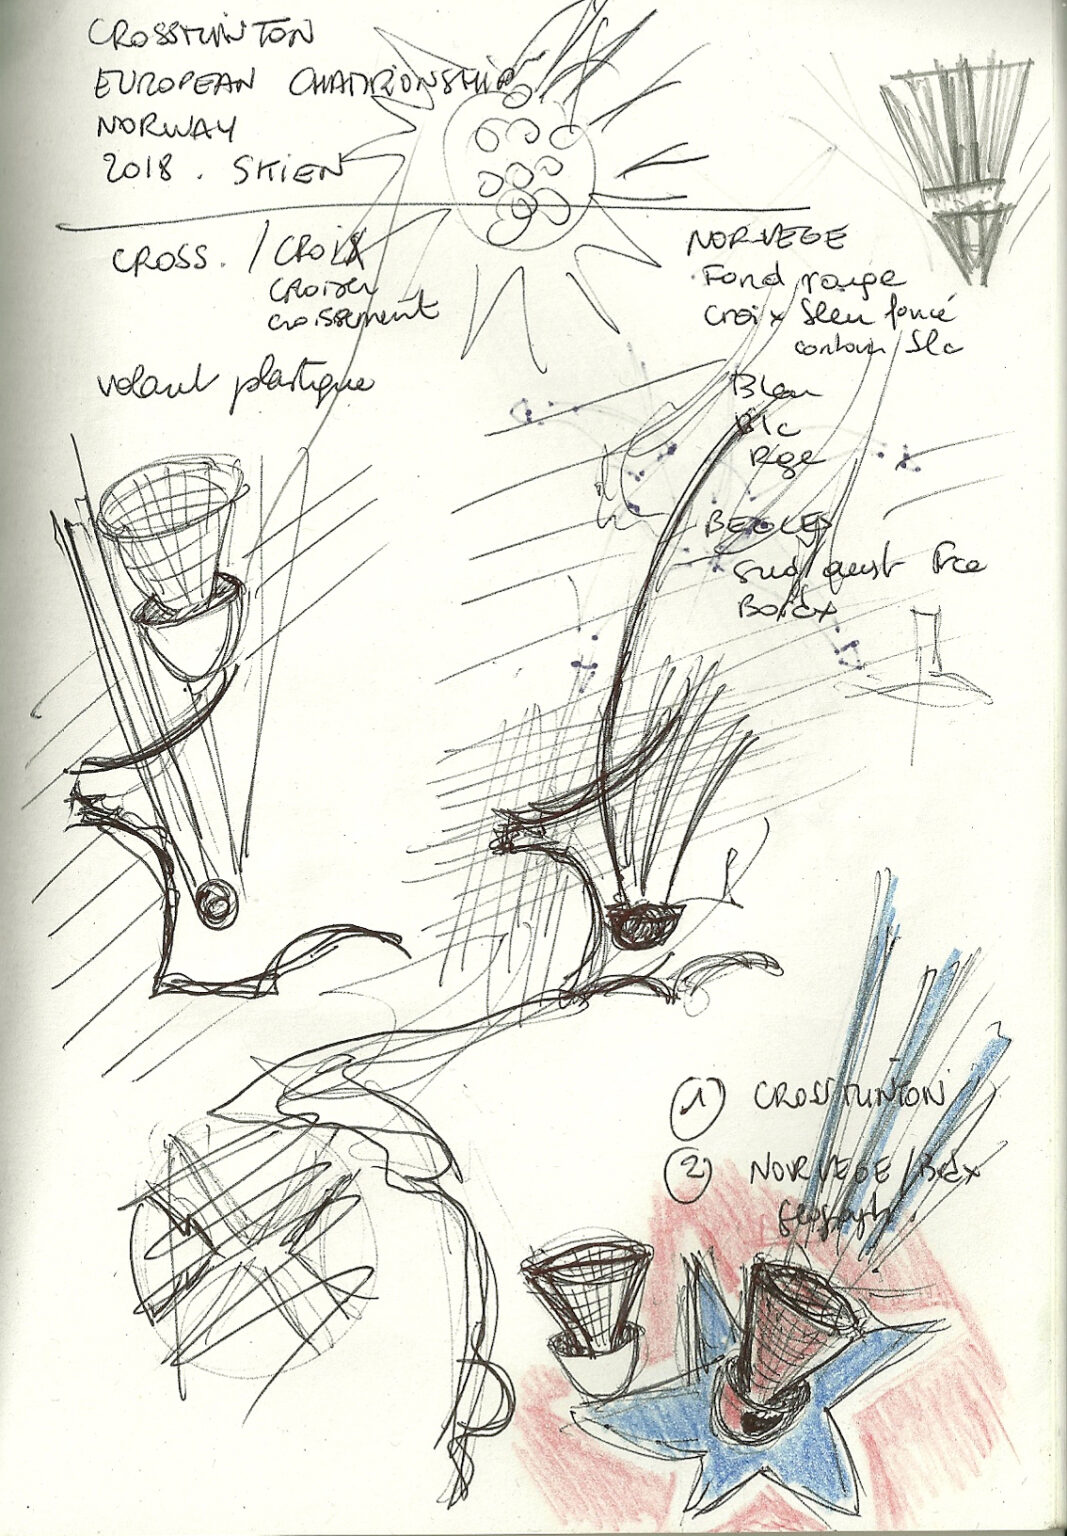 CROSSMINTON
EUROPEAN CHAMPIONSHIP
NORWAY
2018 . SKIEN
CROSS. / CROIX
croiser
croissement
volant plastique
NORVEGE
Fond rouge
croix bleu foncé
contour blc
Bleu
Blc
Rge
BEGLES
sud ouest Fce
Bordx
1 CROSSMINTON
2 NORVEGE / Bdx